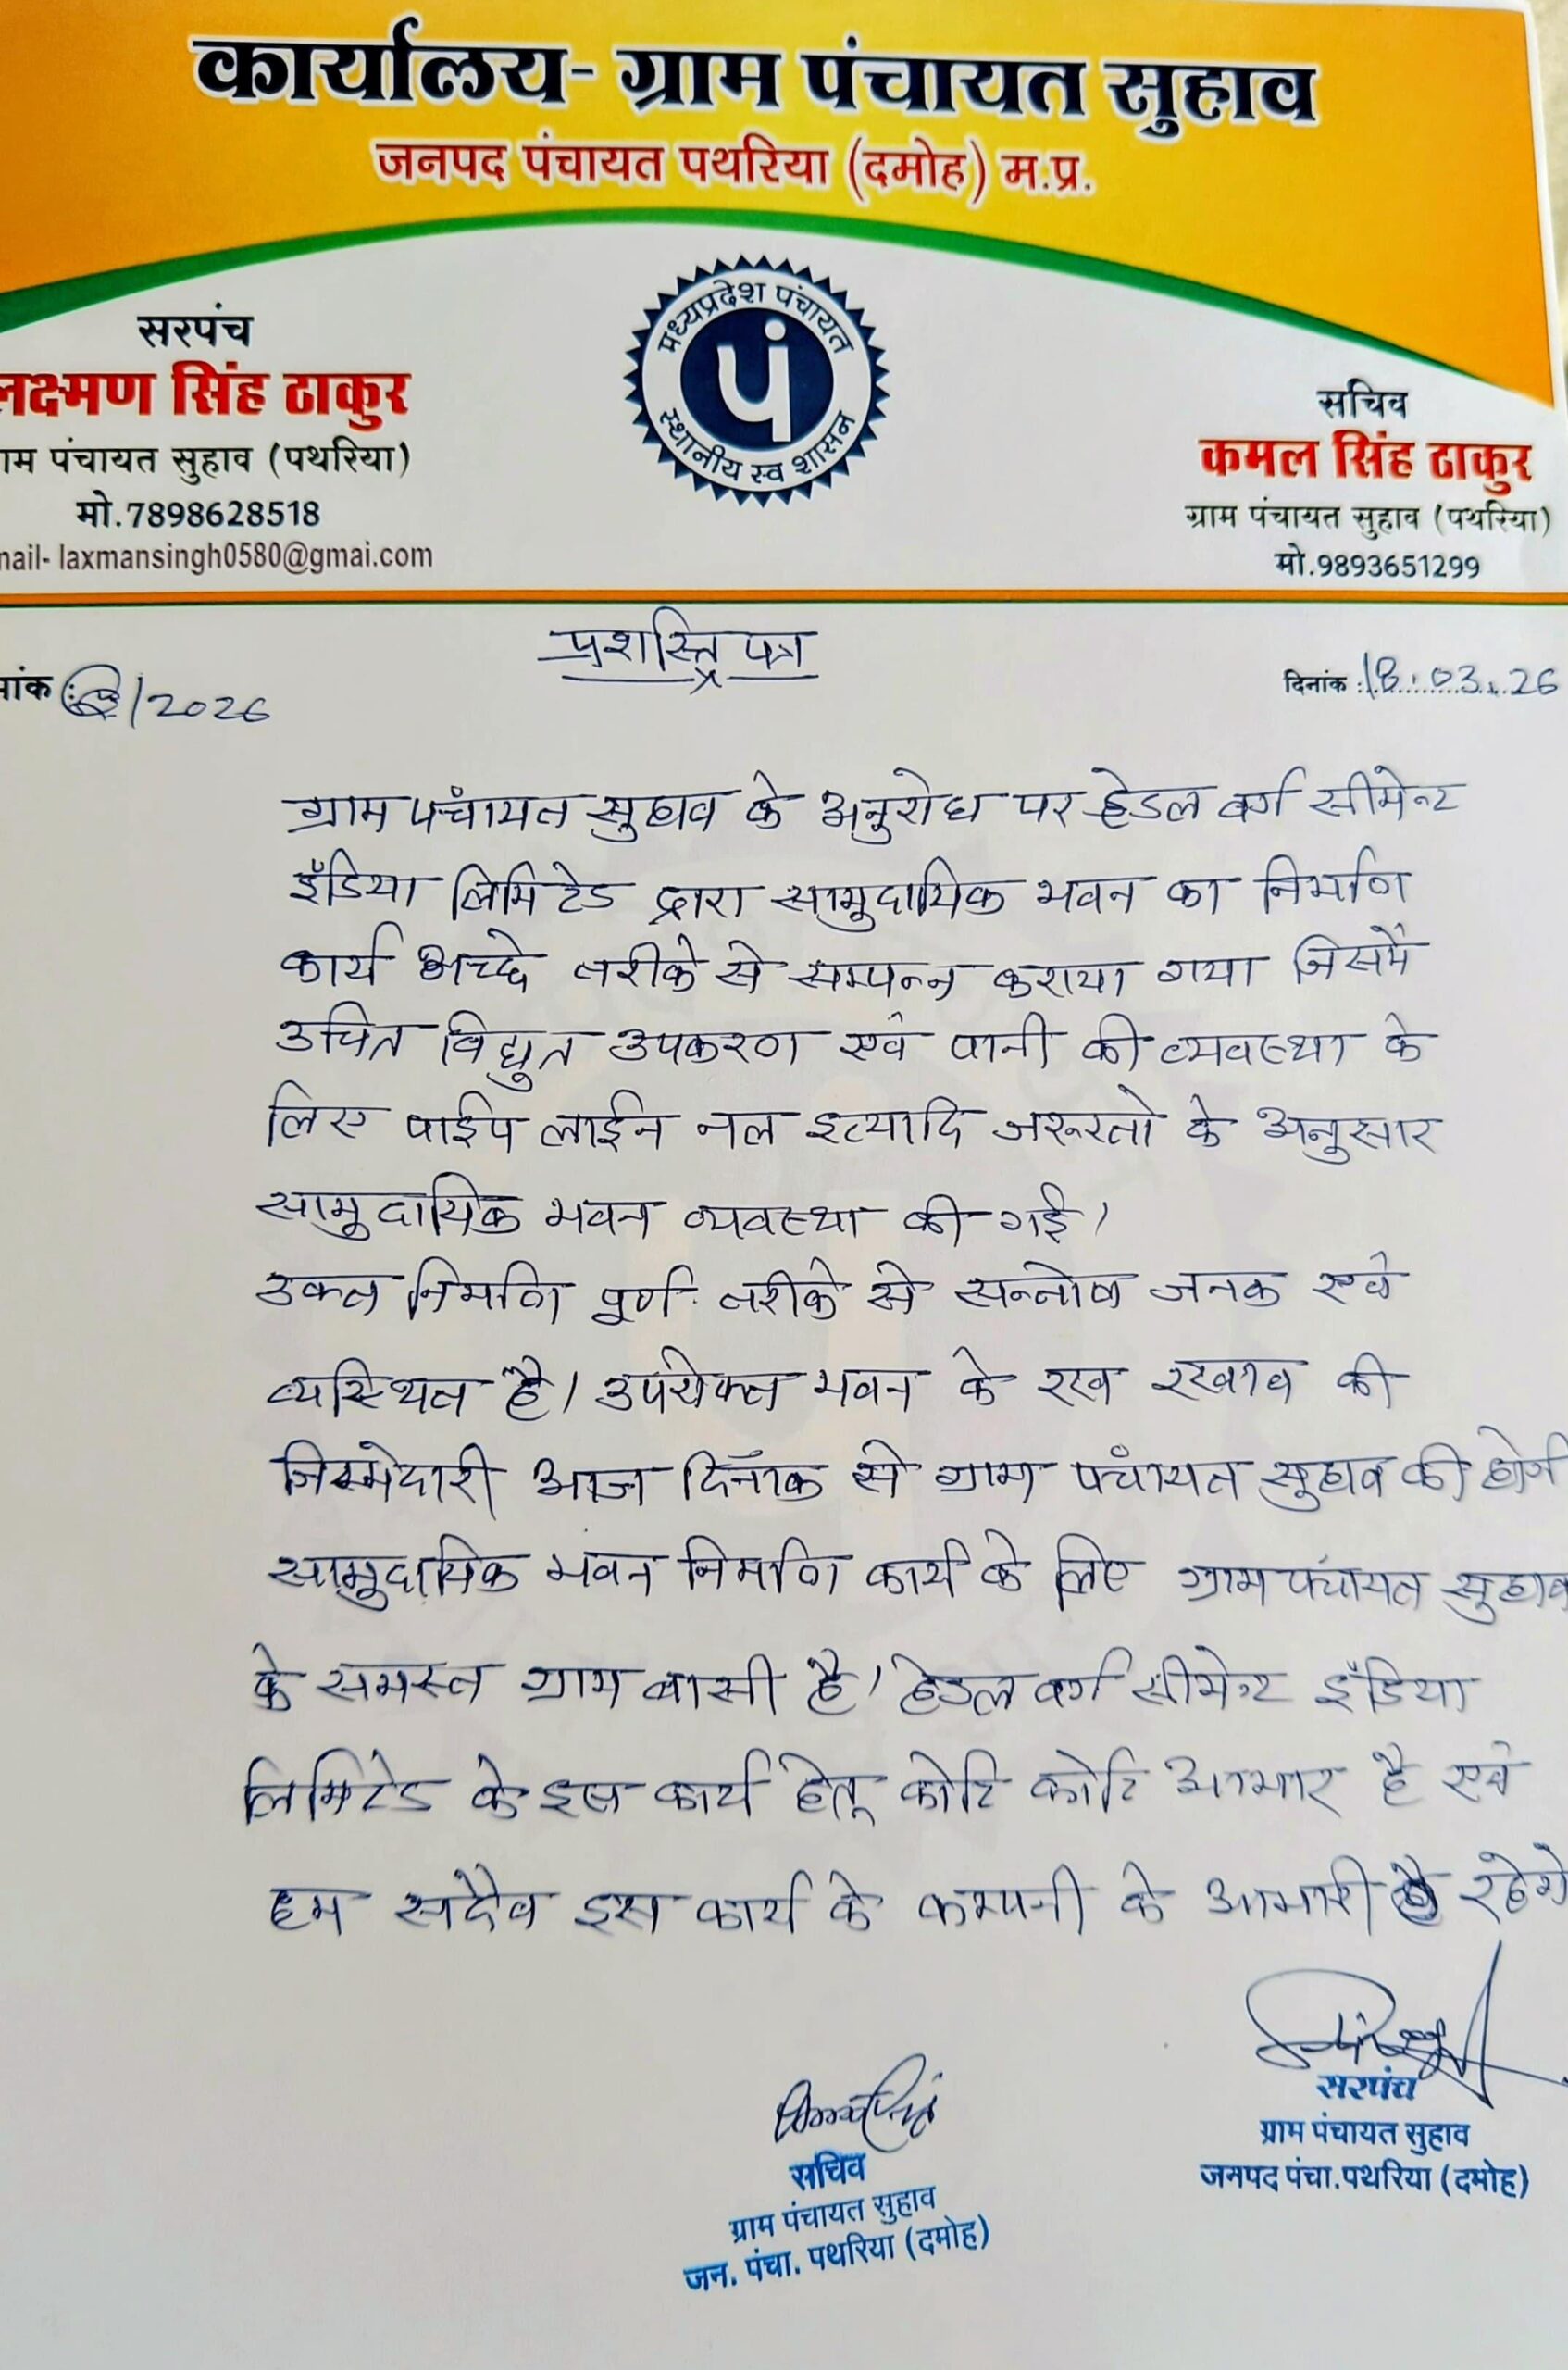 कार्यालय- ग्राम पंचायत सुहाव
जनपद पंचायत पथरिया (दमोह) म.प्र.
सरपंच
लक्ष्मण सिंह ठाकुर
ाम पंचायत सुहाव (पथरिया)
मो.7898628518
mail- laxmansingh0580@gmai.com
मध्यप्रदेश पंचायत
पं
स्थानीय स्व शासन
सचिव
कमल सिंह ठाकुर
ग्राम पंचायत सुहाव (पथरिया)
मो.9893651299
प्रशस्त्रि पत्र
मांक /2026
दिनांक :18.03.26
ग्राम पचांयत सुहाव के अनुरोध पर हेडल वर्ग सीमेन्ट
इँडिया लिमिटेड द्वारा सामुदायिक भवन का निर्माण
कार्य अच्छे तरीके से सम्पन्न कराया गया जिसमें
उचित विद्युत उपकरण एवं पानी की व्यवस्था के
लिए पाईप लाईन नल इत्यादि जरूरतो के अनुसार
सामुदायिक भवन व्यवस्था की गई।
उक्त निर्माण पूर्ण तरीके से सन्तोष जनक एवं
व्यस्थित है। उपरोक्त भवन के रख रखाव की
जिम्मेदारी आज दिनाँक से ग्राम पचांयत सुहाव की होगी
सामुदायिक भवन निर्माण कार्य के लिए ग्राम पंचायत सुहाव
के समस्त ग्राम बासी है। हेडल वर्ग सीमेन्ट इँडिया
लिमिटेड के इस कार्य हेतू कोटि कोटि आभार है एवं
हम सदैव इस कार्य के कम्पनी के आभारी रहेगे
सरपंच
ग्राम पंचायत सुहाव
जनपद पंचा.पथरिया (दमोह)
सचिव
ग्राम पंचायत सुहाव
जन. पंचा. पथरिया (दमोह)